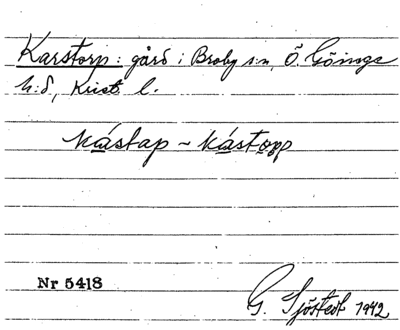 Karstorp: gård i Broby s:n, Ö. Göinge
h:d, Krist. l.
kástap ~ kástopp
Nr 5418
G. Sjöstedt 1942